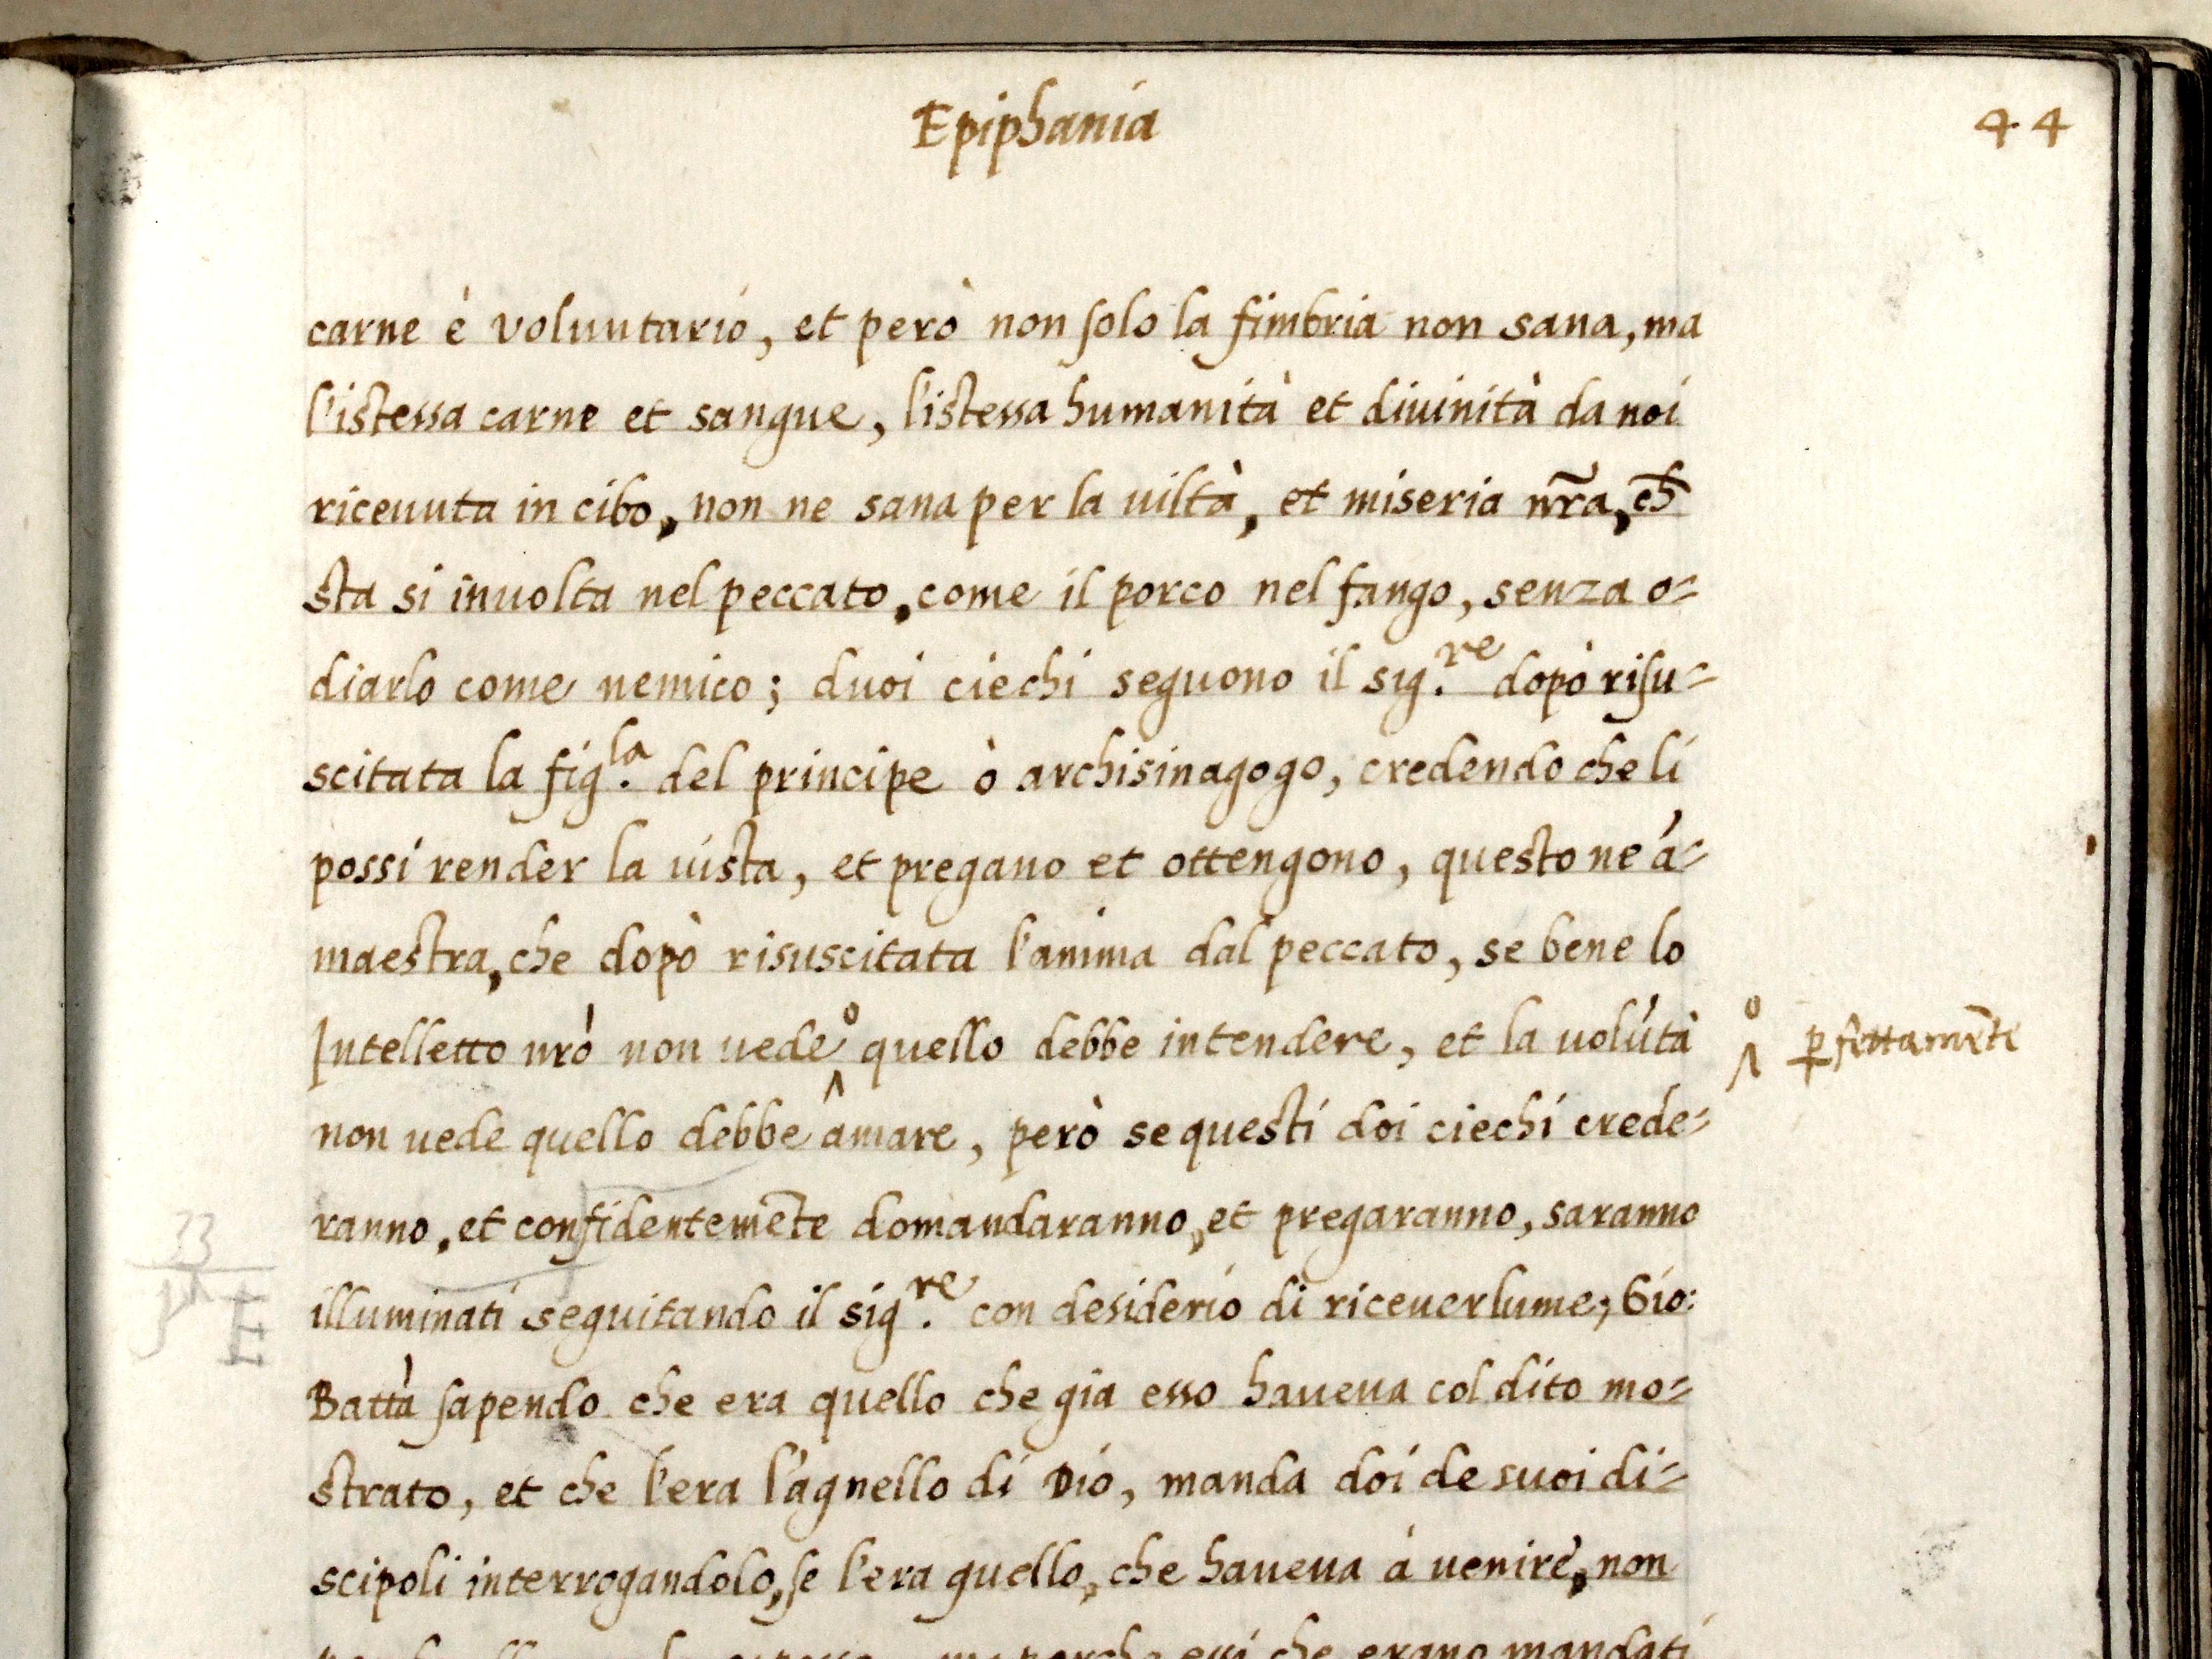 Epiphania
44
carne è voluntario, et però non solo la fimbria non sana, ma
l'istessa carne et sangue, l'istessa humanità et diuinità da noi
riceuuta in cibo, non ne sana per la uiltà, et miseria nr̃a, ch̄
sta si inuolta nel peccato, come il porco nel fango, senza o=
diarlo come nemico; duoi ciechi seguono il sig.re dopò risu=
scitata la fig.la del principe ò archisinagogo, credendo che li
possi render la uista, et pregano et ottengono, questo ne á=
maestra, che dopò risuscitata l'anima dal peccato, se bene lo
Intelletto nŕo non uede quello debbe intendere, et la volútà
^ p̱fettamēte
non uede quello debbe amare, però se questi doi ciechi crede=
ranno, et confidentemēte domandaranno, et pregaranno, saranno
33
illuminati seguitando il sig.re con desiderio di riceuer lume; Gio:
Battà sapendo che era quello che gia esso haueua col dito mo=
strato, et che l'era l'agnello di Dio, manda doi de suoi di=
scipoli interrogandolo, se l'era quello, che haueua à uenire, non
essi che erano mandati